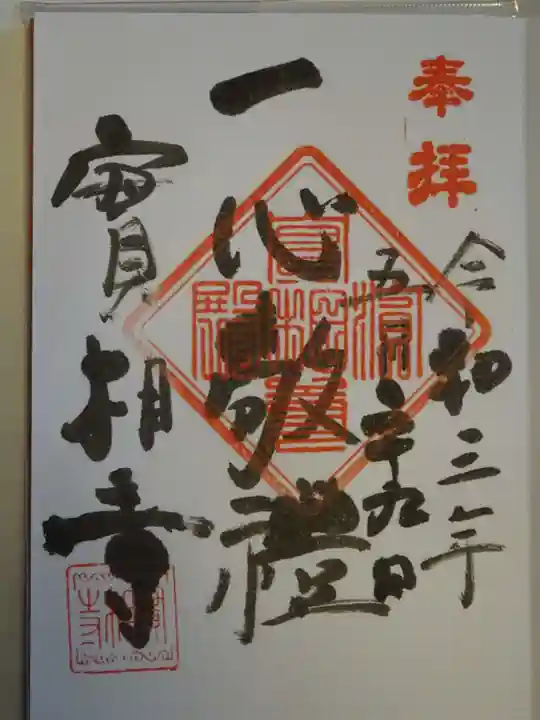 奉拝
令和三年
五月二十九日
一心敬禮
寶相寺